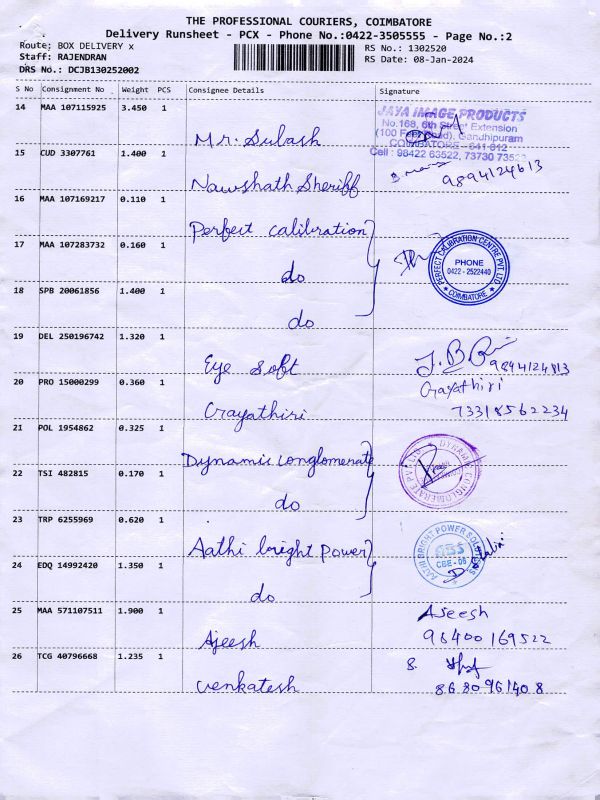 THE PROFESSIONAL COURIERS, COIMBATORE
Delivery Runsheet - PCX - Phone No.:0422-3505555 - Page No.:2
Route; BOX DELIVERY x
Staff: RAJENDRAN
DRS No.: DCJB130252002
RS No.: 1302520
RS Date: 08-Jan-2024
S No Consignment No Weight PCS Consignee Details Signature
14 MAA 107115925 3.450 1 Mr. Subash
JAYA IMAGE PRODUCTS
No.168, 6th Street Extension
(100 Feet Road), Gandhipuram
COIMBATORE - 641 012
Cell : 98422 63522, 73730 73523
15 CUD 3307761 1.400 1 Nawshath Sheriff
9894124613
16 MAA 107169217 0.110 1 Perfect calibration
17 MAA 107283732 0.160 1 do
PERFECT CALIBRATION CENTRE PVT LTD
PHONE
0422 - 2522440
COIMBATORE
18 SPB 20061856 1.400 1 do
19 DEL 250196742 1.320 1 Eye Soft
9894124813
20 PRO 15000299 0.360 1 Gayathiri
Gayathiri
73318562234
21 POL 1954862 0.325 1 Dynamic conglomerate
22 TSI 482815 0.170 1 do
DYNAMIC CONGLOMERATE PVT LTD
23 TRP 6255969 0.620 1 Aathi bright power
AATHI BRIGHT POWER SOLUTIONS
ABS
CBE - 06
24 EDQ 14992420 1.350 1 do
25 MAA 571107511 1.900 1 Ajeesh
Ajeesh
96400169522
26 TCG 40796668 1.235 1 venkatesh
S.
8680961408